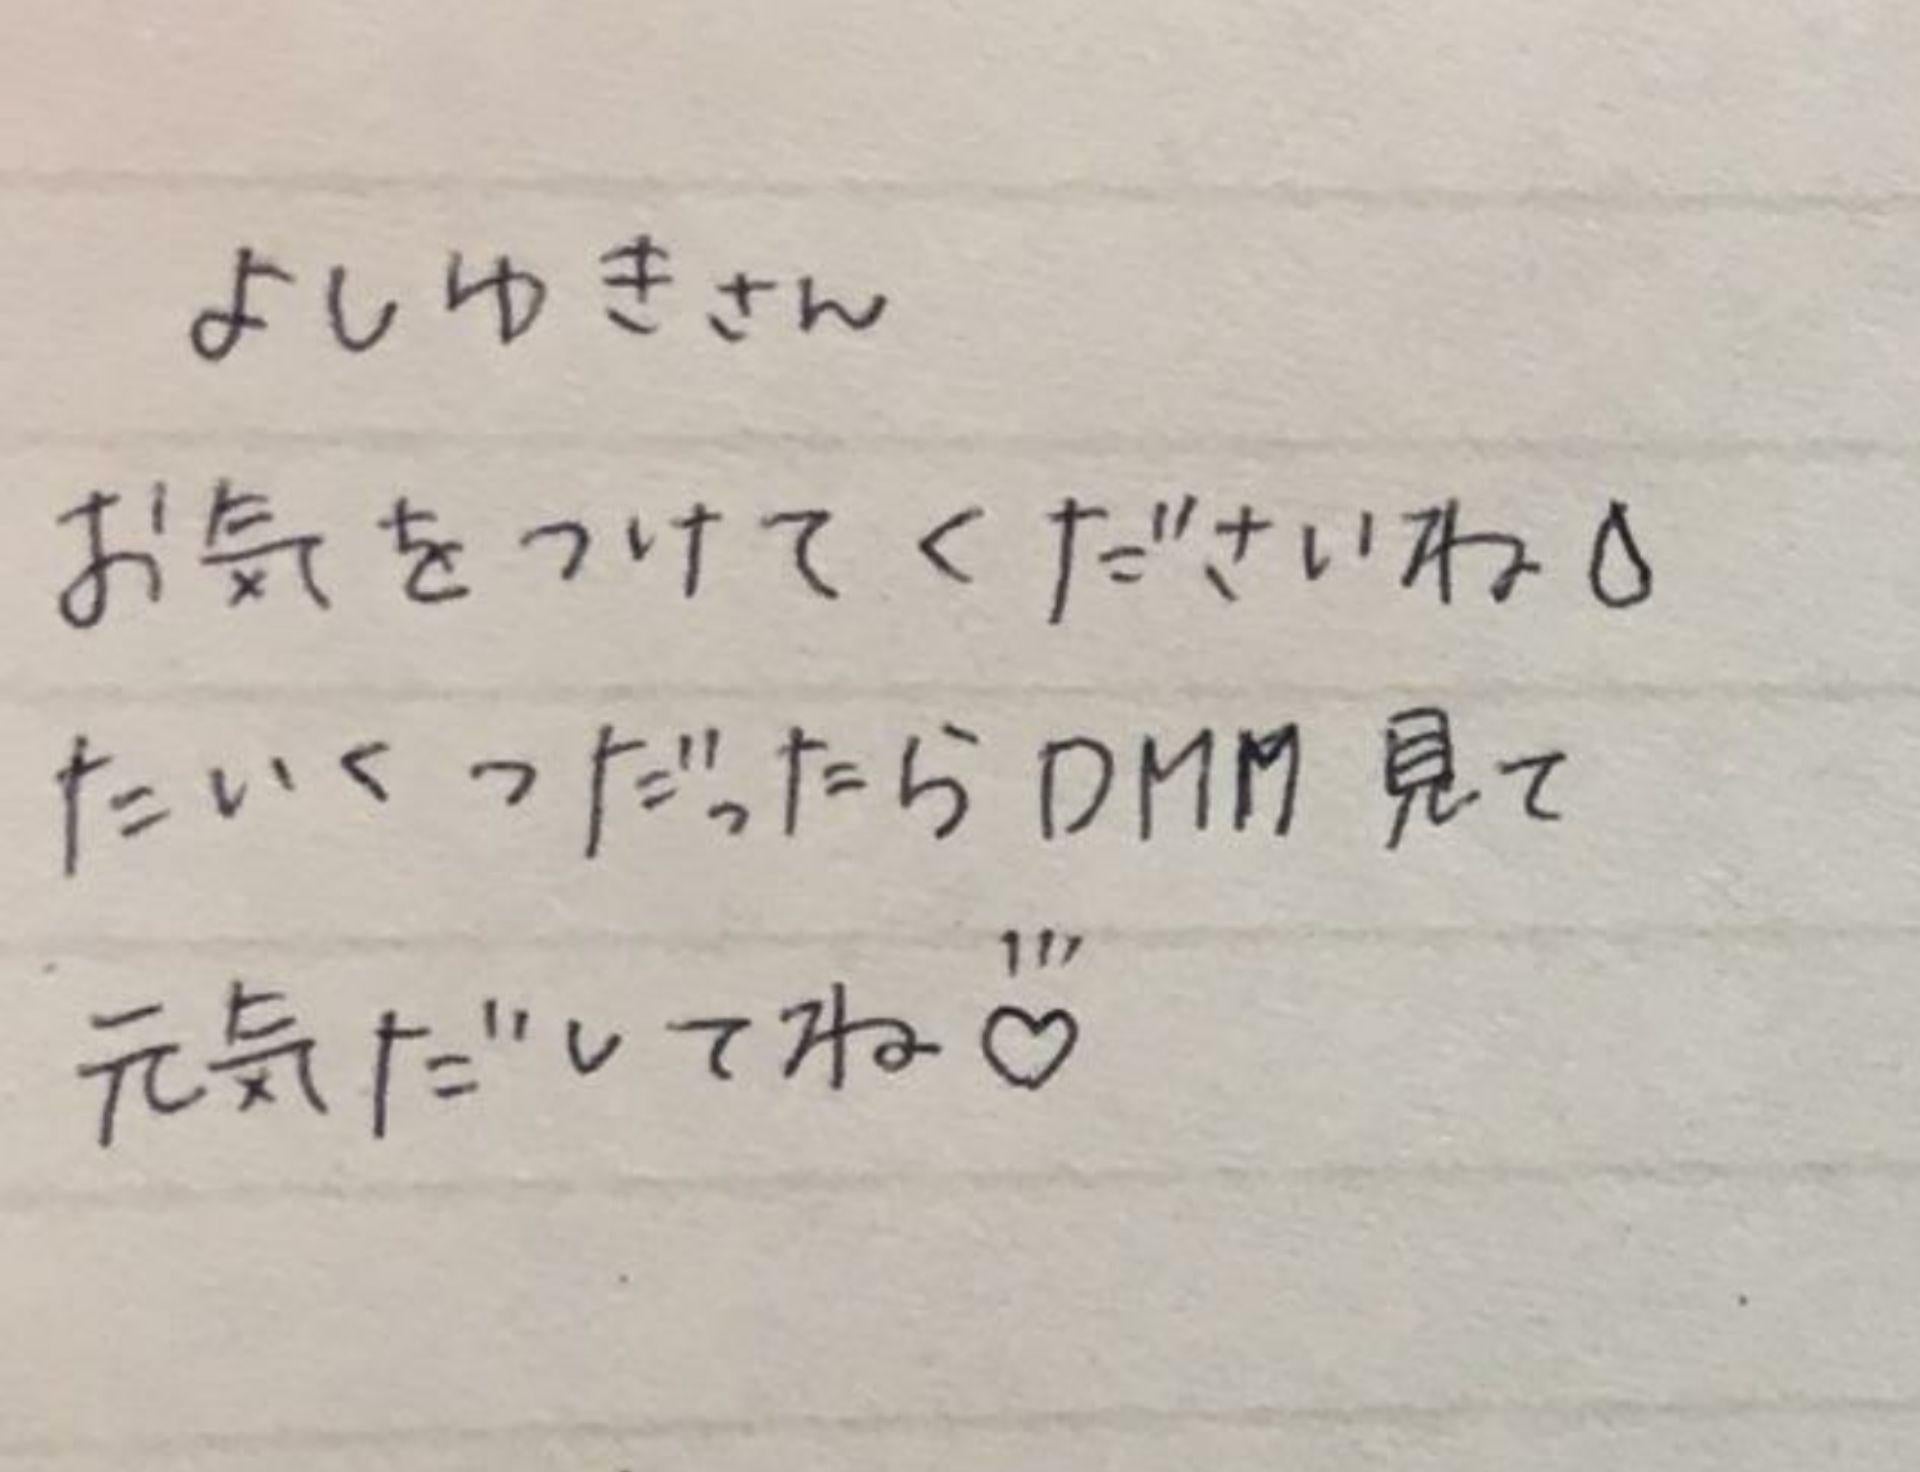 よしゆきさん
お気をつけてくださいね💧
たいくつだったらDMM見て
元気だしてね♡